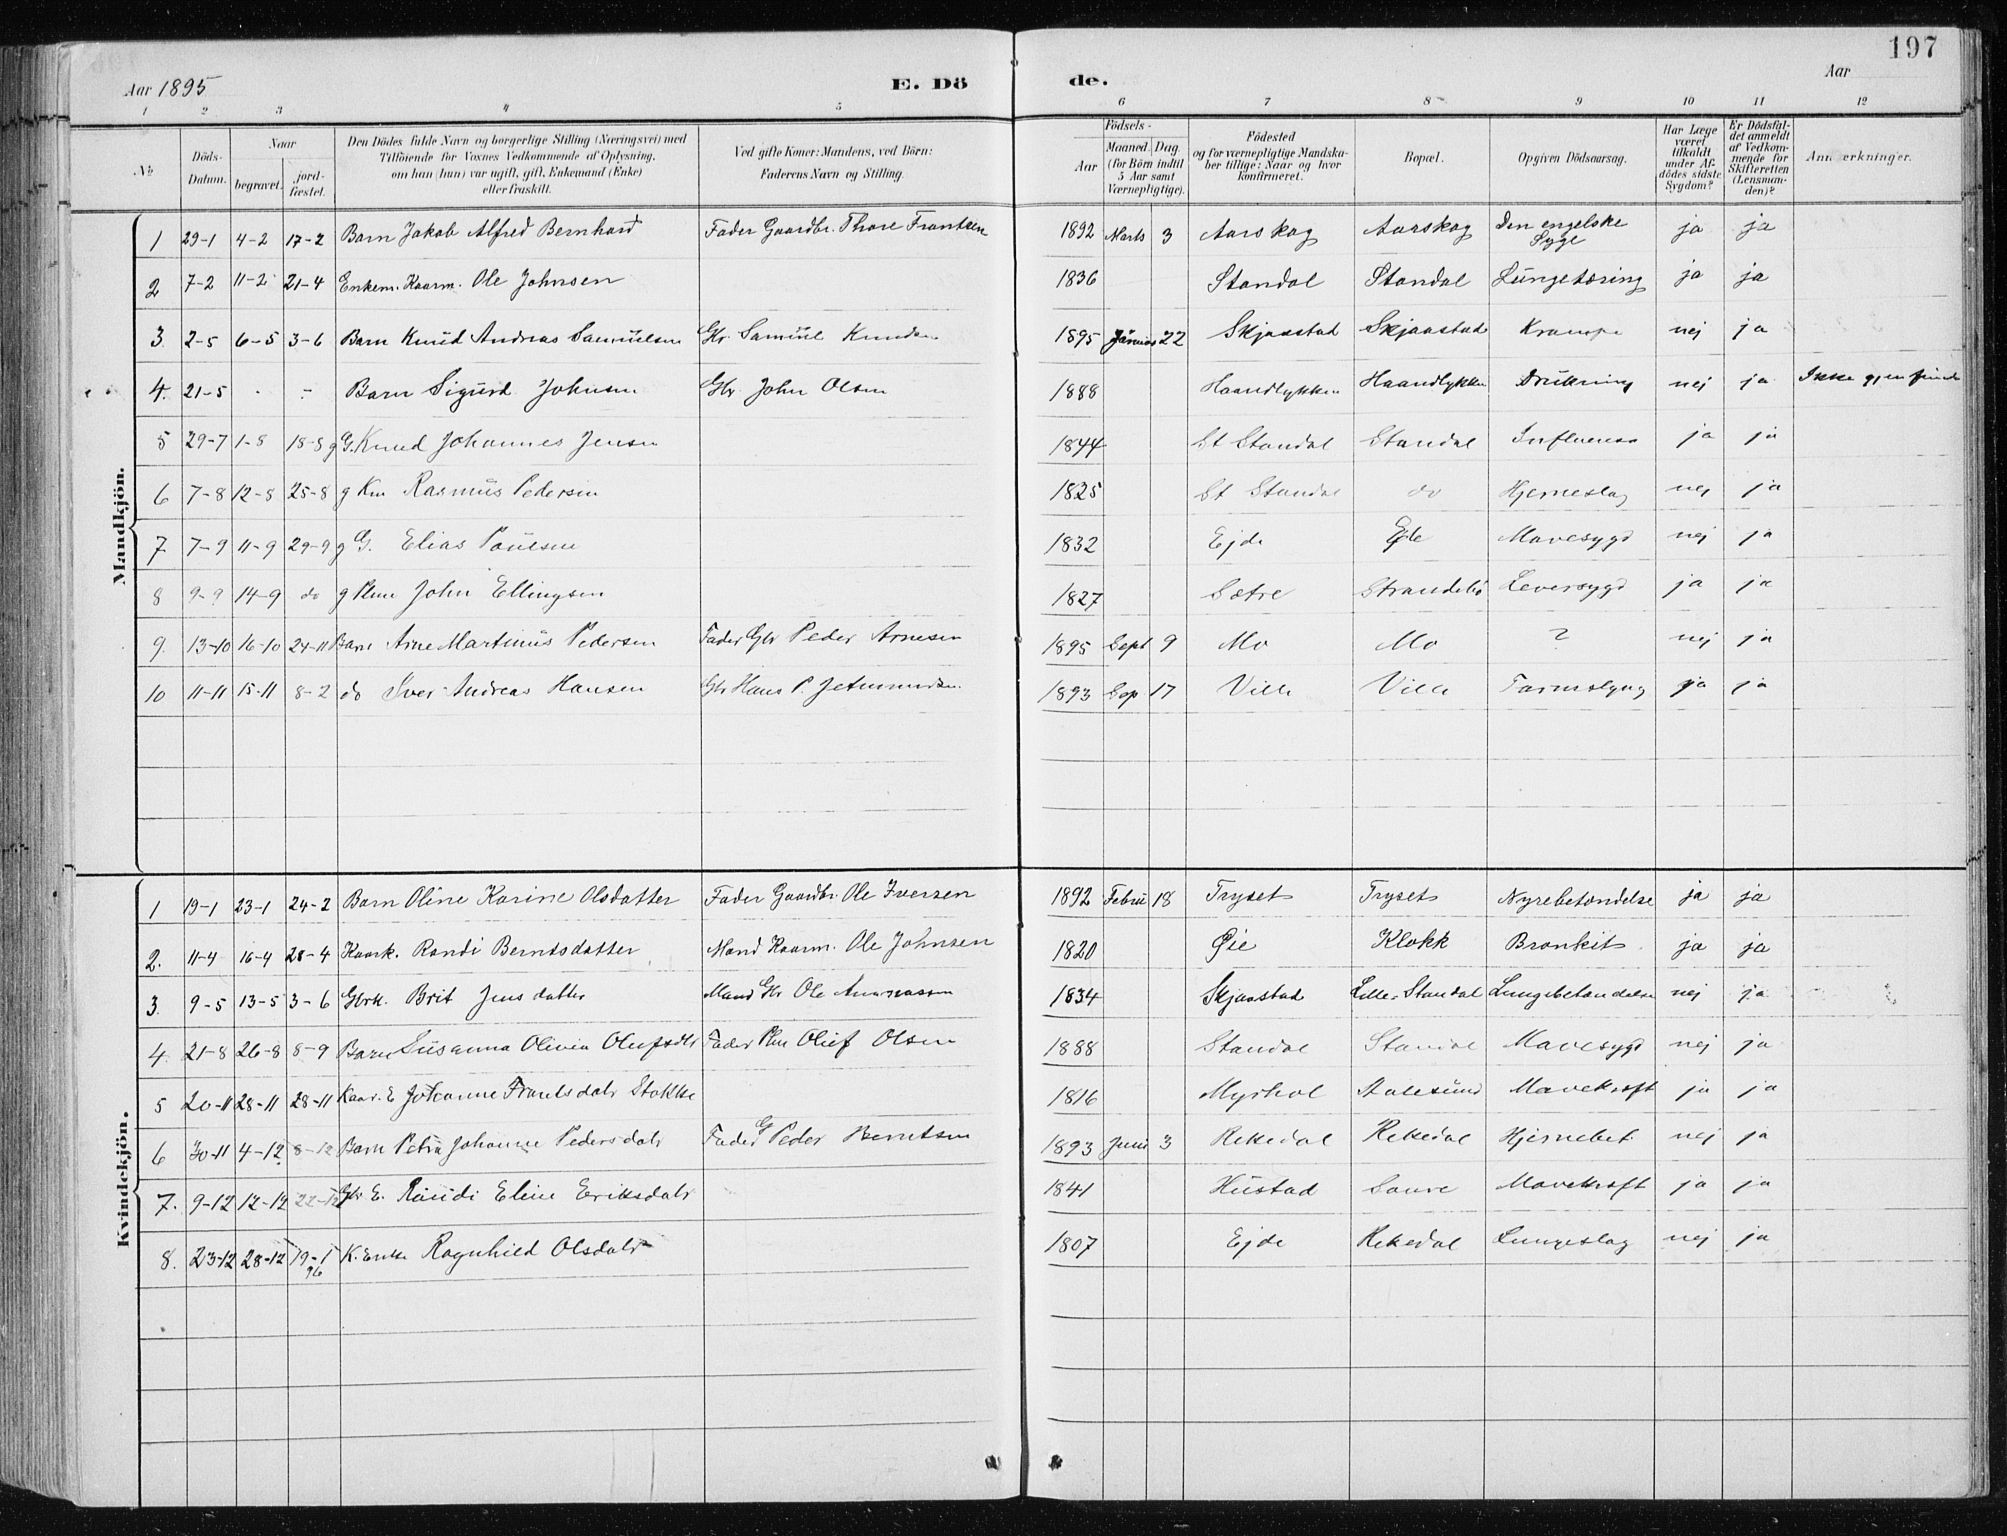 197
Aar 1895
E. Dö
de.
Aar
1 2 3 4 5 6 7 8 9 10 11 12
No.
Döds-Datum.
Naar
begravet.
jord-fæstet.
Den Dödes fulde Navn og borgerlige Stilling (Næringsvei) med
Tilföiende for Voxnes Vedkommende af Oplysning,
om han (hun) var ugift, gift, Enkemand (Enke)
eller fraskilt.
Ved gifte Koner: Mandens, ved Börn:
Faderens Navn og Stilling.
Födsels-
Aar
Maaned. Dag.
(for Börn indtil
5 Aar samt
Værnepligtige).
Födested
og for værnepligtige Mandska-
ber tillige: Naar og hvor
konfirmeret.
Bopæl.
Opgiven Dödsaarsag.
Har Læge
været
tilkaldt
under Af-
dödes sidste
Sygdom?
Er Dödsfal-
det anmeldt
af Vedkom-
mende for
Skifteretten
(Lensman-
den)?
Anmærkninger.
Mandkjön.
1 29-1 4-2 17-2 Barn Jakob Alfred Bernhard Fader Gaardbr. Thore Frantzen 1892 Marts 3 Aarskog Aarskog Den engelske Syge ja ja
2 7-2 11-2 21-4 Enkem. Kaarm. Ole Johnsen 1836 Standal Standal Lungetæring ja ja
3 2-5 6-5 3-6 Barn Knud Andreas Samuelsen Gbr. Samuel Knudsen 1895 Januar 22 Skjaastad Skjaastad Krampe nej ja
4. 21-5 - - Barn Sigurd Johnsen Gbr John Olsen 1888 Haandlykken Haandlykken Drukning nej ja Ikke gjenfunde
5 29-7 1-8 18-8 g G. Knud Johannes Jensen 1844 St Standal Standal Influensa ja ja
6 7-8 12-8 25-8 g Km Rasmus Pedersen 1825 St Standal do Hjerneslag nej ja
7. 7-9 11-9 29-9 g G. Elias Poulsen 1832 Ejde Ejde Mavesygd nej ja
8 9-9 14-9 do g Plm John Ellingsen 1827 Sætre Leversygd ja ja
9. 13-10 16-10 24-11 Barn Arne Martinus Pedersen Fader Gbr Peder Arnesen 1895 Sept 9 Mo Mo ? nej ja
10 11-11 15-11 8-2 do Iver Andreas Hansen Gbr Hans P. 1893 Sep 17 Ville Ville ja ja
Kvindekjön.
1 19-1 23-1 24-2 Barn Oline Karine Olsdatter Fader Gaardbr. Ole Iversen 1892 Febru 18 Tryset Tryset Nyrebetændelse ja ja
2. 11-4 16-4 28-4 Kaark. Randi Berntsdatter Mand Kaarm. Ole Johnsen 1820 Øie Klokk Bronkit ja ja
3. 9-5 13-5 3-6 Gbrk. Brit Jensdatter Mand Gbr Ole Andreassen 1834 Skjaastad Lille-Standal Lungebetændelse nej ja
4. 21-8 26-8 8-9 Barn Susanna Olivia Olufsdtr Fader Plm Oluf Olsen 1888 Standal Standal Mavesygd nej ja
5 20-11 28-11 28-11 Kaar. E Johanne Frantsdatr Stokke 1816 Myrhol Aalesund Mavekræft ja ja
6 30-11 4-12 8-12 Barn Petra Johanne Pedersdatr Fader G Peder Berntsen 1893 Juni 3 Rekedal Rekedal Hjernebet. nej ja
7. 9-12 12-12 22-12 Gbr E. Randi Eline Eriksdatr 1841 Hustad Saure Mavekræft ja ja
8. 23-12 28-12 19-1 96 K. Enke Ragnhild Olsdatr 1807 Ejde Rekedal Lungeslag nej ja